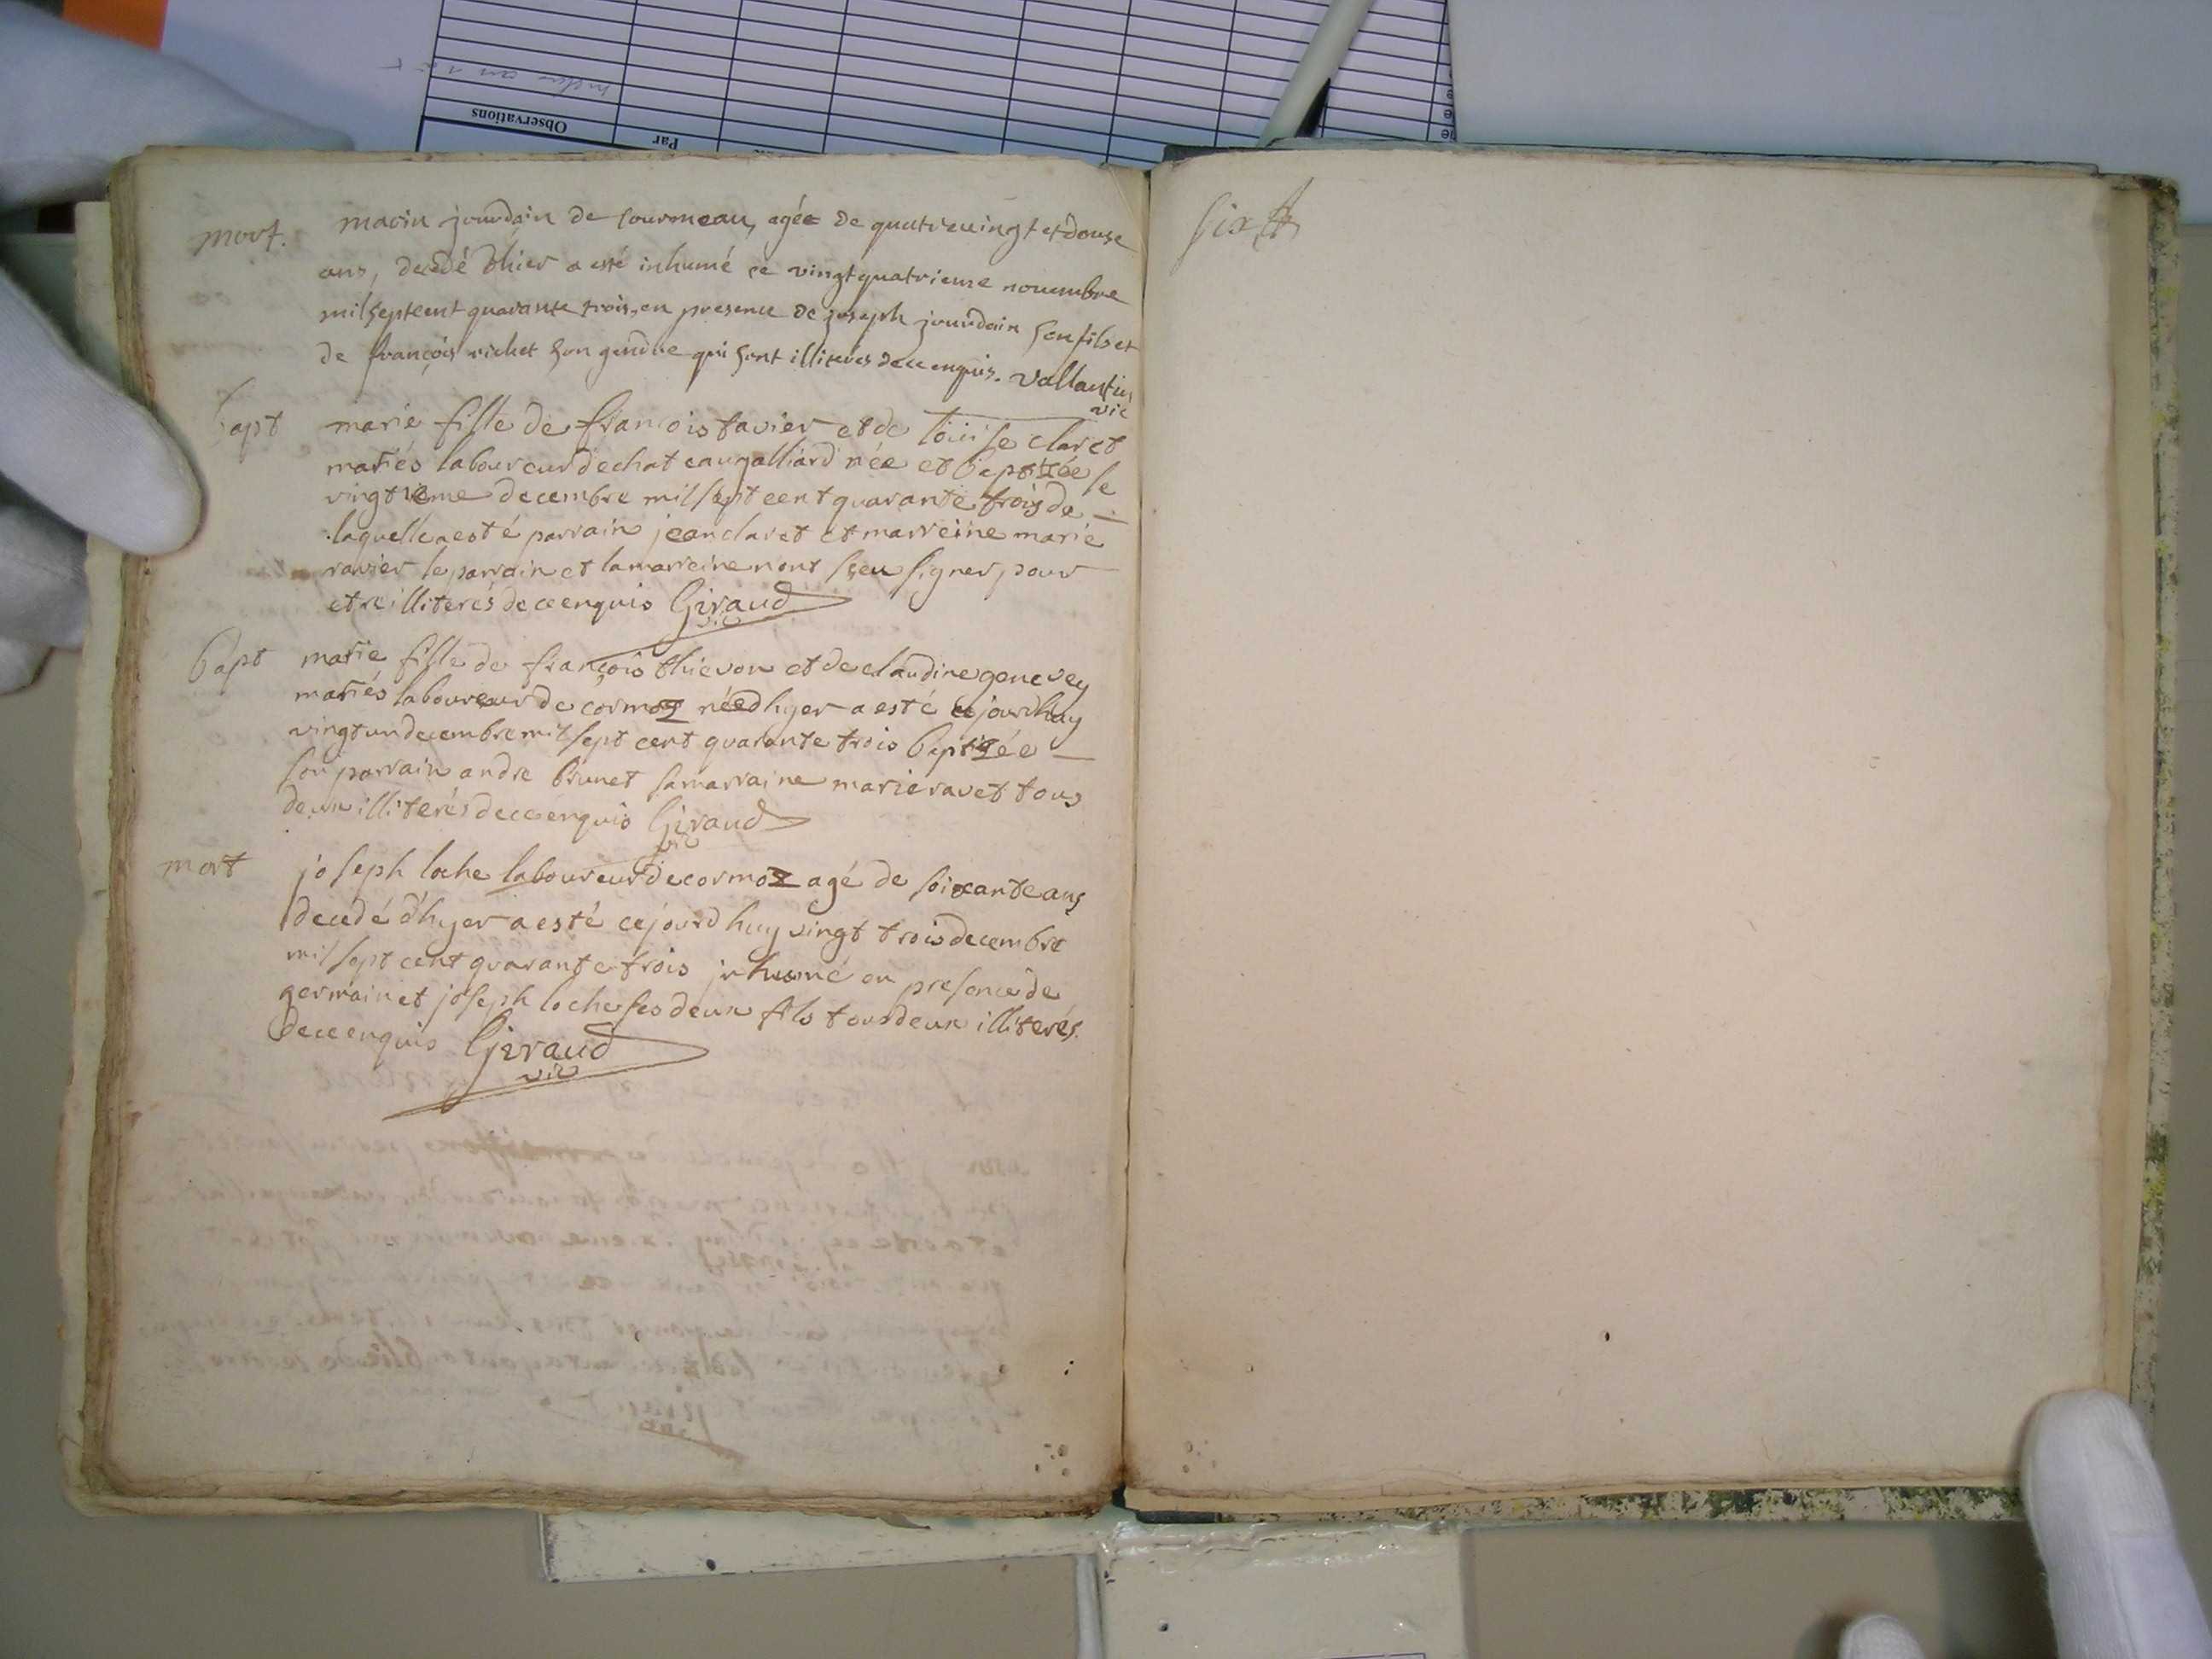 mort. marin jourdain de courmeau, agée de quatrevingt et douse
ans, decedé d'hier a esté inhumé ce vingtquatrieme novembre
mil septcent quarante trois, en presence de joseph jourdain son fils et
de françois richet son gendre qui sont illiterés de ce enquis. vallantin
vic
bapt marie fille de francois tavier et de loüise claret
mariés laboureur de chateaugalliard née et baptizée le
vingtieme decembre mil sept cent quarante trois de
laquelle a esté parrain jean claret et marreine marie
ravier le parrain et la marreine n'ont sçeu signer, pour
etre illiterés de ce enquis Giraud
vic
bapt marie fille de françois thievon et de claudine genevey
mariés laboureur de cormoz née d'hyer a esté cejourdhuy
vingt un decembre mil sept cent quarante trois baptizée
son parrain andre brunet sa marraine marie ravet tous
deux illiterés de ce enquis Giraud
vic
mort joseph loche laboureur de cormoz agé de soixante ans
decedé d'hyer a esté cejourd huy vingt trois decembre
mil sept cent quarante trois inhumé en presence de
germain et joseph loche ses deux fils tous deux illiterés
de ce enquis Giraud
vic
six
Observations
Par